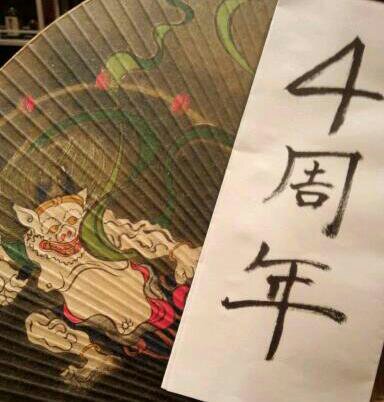 4周年